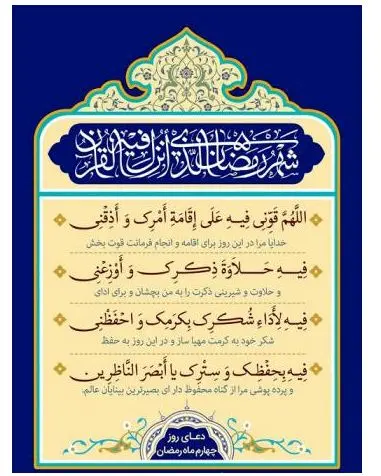 شهر رمضان الذی انزل فیه القرآن
اللَّهُمَّ قَوِّنِی فِیهِ عَلَی إِقَامَةِ أَمْرِک وَ أَذِقْنِی
خدایا مرا در این روز برای اقامه و انجام فرمانت قوت بخش
فِیهِ حَلاوَةَ ذِکرِک وَ أَوْزِعْنِی
و حلاوت و شیرینی ذکرت را به من بچشان و برای ادای
فِیهِ لِأَدَاءِ شُکرِک بِکرَمِک وَ احْفَظْنِی
شکر خود به کرمت مهیا ساز و در این روز به حفظ
فِیهِ بِحِفْظِک وَ سِتْرِک یا أَبْصَرَ النَّاظِرِین
و پرده پوشی مرا از گناه محفوظ دار ای بصیرترین بینایان عالم.
دعای روز
چهارم ماه رمضان